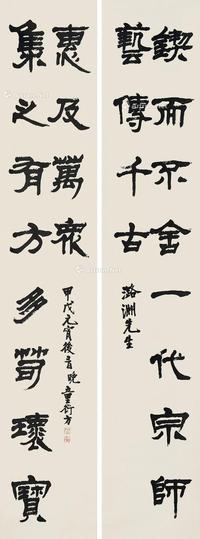 鍥而不舍一代宗師
藝傳千古
潞淵先生
集之有方多瓌寶
惠及萬衆
甲戌元宵後晚童衍方